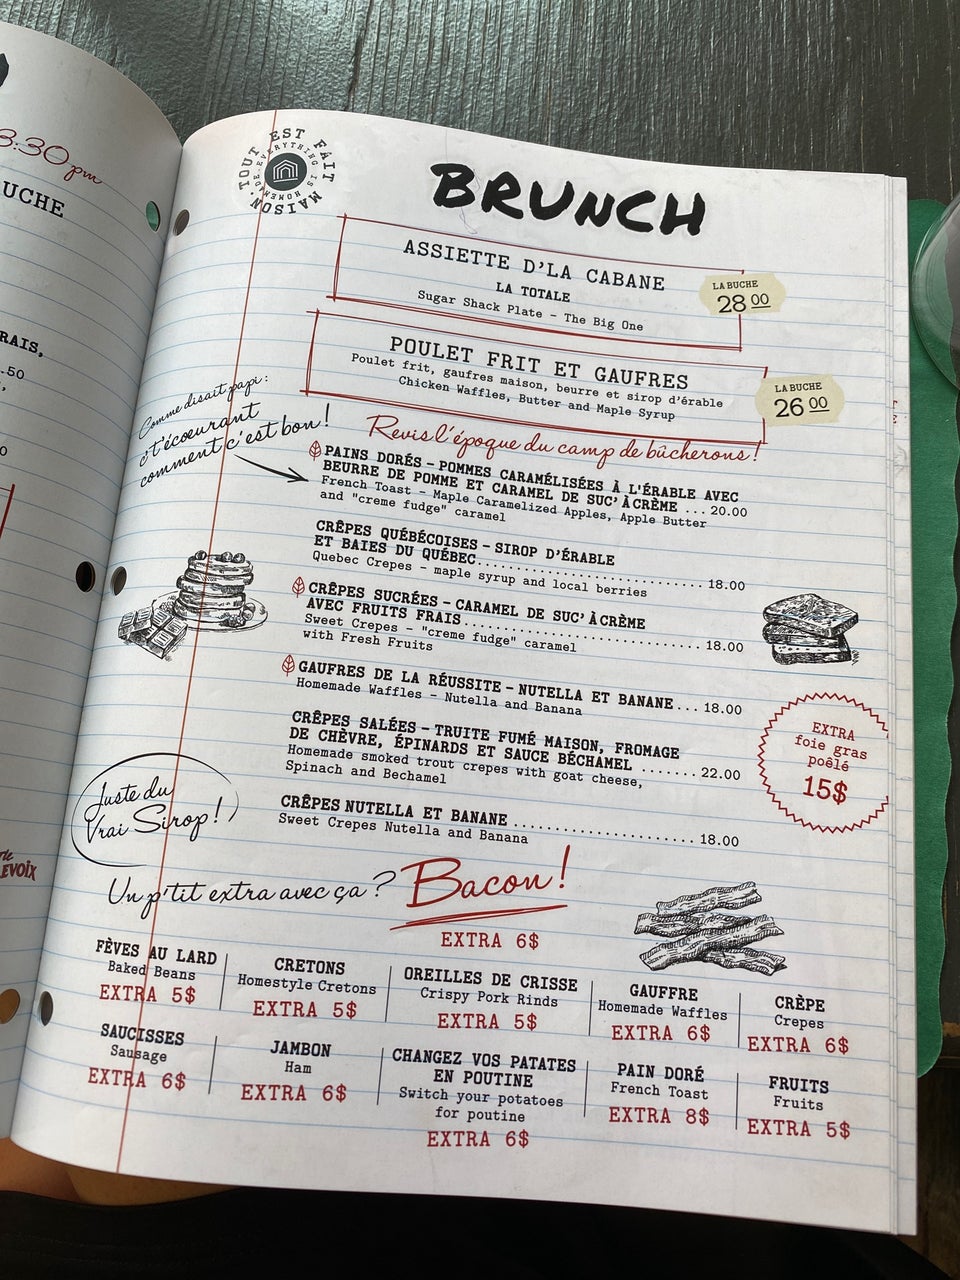 3:30pm
UCHE
RAIS,
.50
EVOIX
TOUT EST FAIT MAISON
EVERYTHING IS HOMEMADE
BRUNCH
ASSIETTE D'LA CABANE
LA TOTALE
Sugar Shack Plate - The Big One
LA BUCHE
28 00
POULET FRIT ET GAUFRES
Poulet frit, gaufres maison, beurre et sirop d'érable
Chicken Waffles, Butter and Maple Syrup
LA BUCHE
26 00
Comme disait papi:
c't'écoeurant
comment c'est bon!
Revis l'époque du camp de bûcherons!
PAINS DORÉS - POMMES CARAMÉLISÉES À L'ÉRABLE AVEC
BEURRE DE POMME ET CARAMEL DE SUC' À CRÈME ... 20.00
French Toast - Maple Caramelized Apples, Apple Butter
and "creme fudge" caramel
CRÊPES QUÉBÉCOISES - SIROP D'ÉRABLE
ET BAIES DU QUÉBEC.............................. 18.00
Quebec Crepes - maple syrup and local berries
CRÊPES SUCRÉES - CARAMEL DE SUC' À CRÈME
AVEC FRUITS FRAIS............................... 18.00
Sweet Crepes - "creme fudge" caramel
with Fresh Fruits
GAUFRES DE LA RÉUSSITE - NUTELLA ET BANANE... 18.00
Homemade Waffles - Nutella and Banana
CRÊPES SALÉES - TRUITE FUMÉ MAISON, FROMAGE
DE CHÈVRE, ÉPINARDS ET SAUCE BÉCHAMEL ....... 22.00
Homemade smoked trout crepes with goat cheese,
Spinach and Bechamel
EXTRA
foie gras
poêlé
15$
CRÊPES NUTELLA ET BANANE ....................... 18.00
Sweet Crepes Nutella and Banana
Juste du
Vrai Sirop!
Un p'tit extra avec ça ? Bacon!
EXTRA 6$
FÈVES AU LARD
Baked Beans
EXTRA 5$
CRETONS
Homestyle Cretons
EXTRA 5$
OREILLES DE CRISSE
Crispy Pork Rinds
EXTRA 5$
GAUFFRE
Homemade Waffles
EXTRA 6$
CRÈPE
Crepes
EXTRA 6$
SAUCISSES
Sausage
EXTRA 6$
JAMBON
Ham
EXTRA 6$
CHANGEZ VOS PATATES
EN POUTINE
Switch your potatoes
for poutine
EXTRA 6$
PAIN DORÉ
French Toast
EXTRA 8$
FRUITS
Fruits
EXTRA 5$